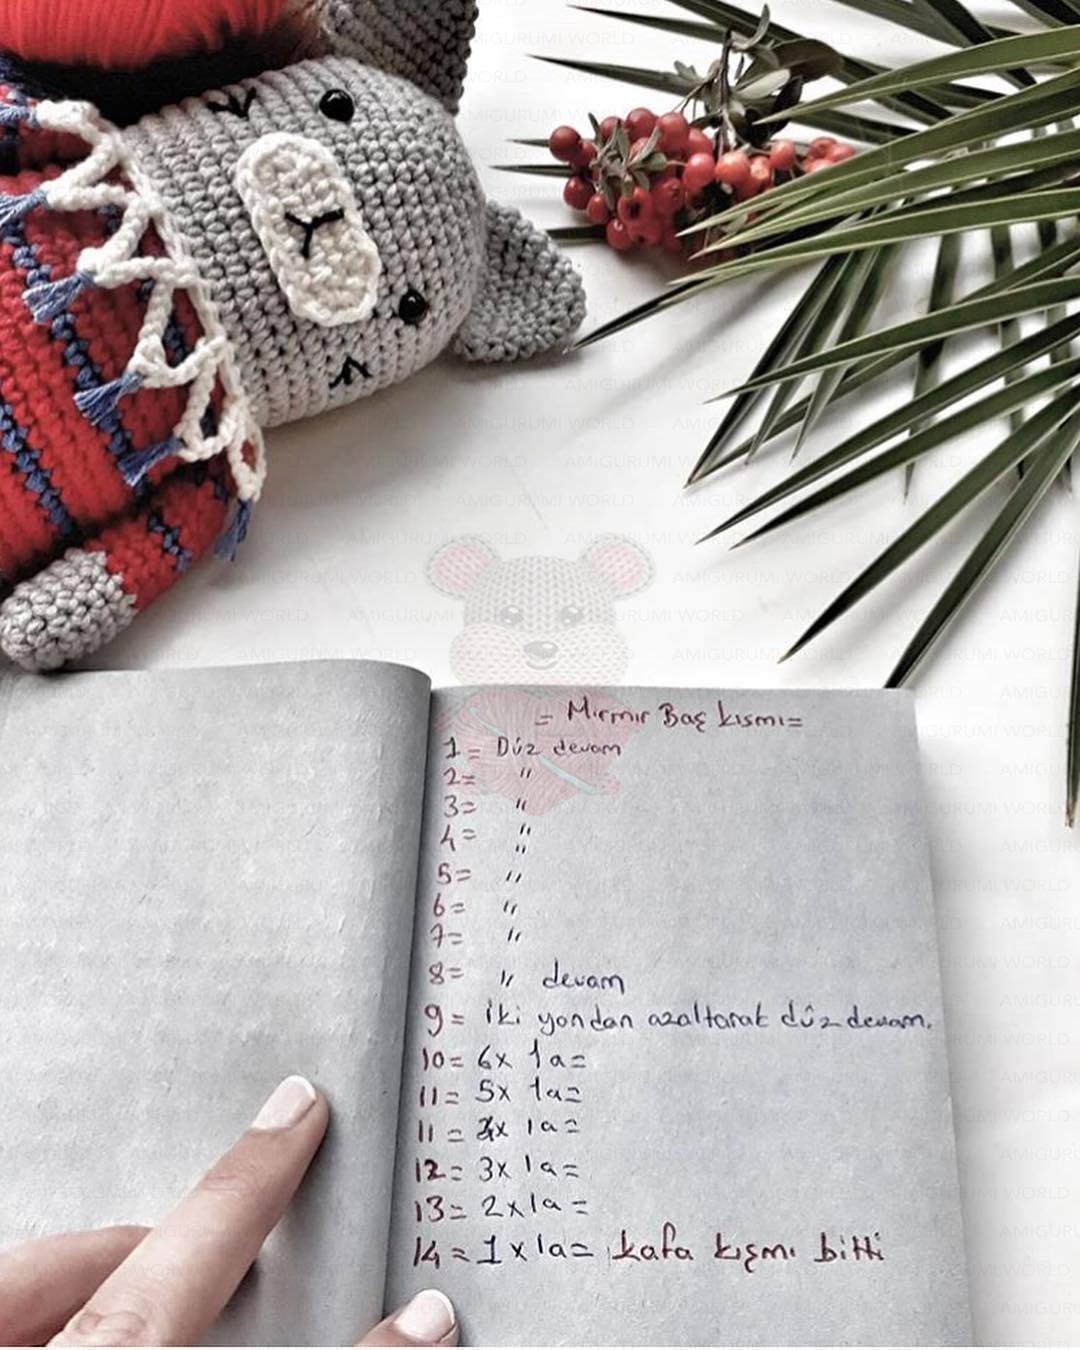 = Mırmır Baş kısmı=
1 = Düz devam
2= "
3= "
4= "
"
5= "
6= "
7= "
8= " devam
9= İki yondan azaltarak düz devam.
10= 6x 1a=
11= 5x 1a=
11= 4x 1a=
12= 3x 1a=
13= 2x1a=
14=1x1a= kafa kışmı bitti
AMIGURUMI WORLD